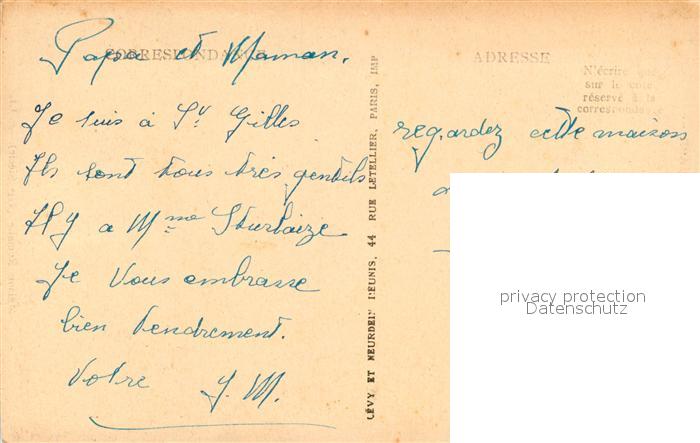 CORRESPONDANCE
Papa et Maman,
Je suis à St Gilles
Ils sont tous très gentils
Il y a Mme
Je vous embrasse
bien tendrement.
Votre J. M.
LÉVY ET NEURDEIN RÉUNIS, 44 RUE LETELLIER, PARIS, IMP
ADRESSE
N'écrire que
sur le côté
réservé à la
correspondance
regardez cette maison
privacy protection
Datenschutz